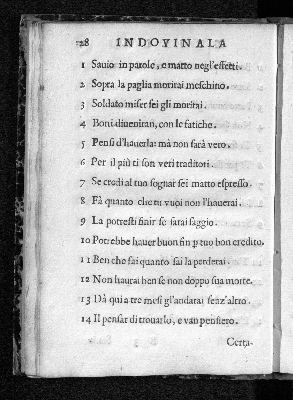 128 INDOVINALA
1 Sauio in parole, e matto negl'effetti.
2 Sopra la paglia morirai meschino.
3 Soldato miser sei gli morirai.
4 Boni diueniran, con le fatiche.
5 Pensi d'hauerla: mà non sarà vero.
6 Per il più ti son veri traditori.
7 Se credi al tuo sognar sei matto espresso.
8 Fà quanto che tu vuoi non l'hauerai.
9 La potresti finir se sarai saggio.
10 Potrebbe hauer buon fin p tuo bon credito.
11 Ben che fai quanto sai la perderai.
12 Non haurai ben se non doppo sua morte.
13 Dà qui a tre mesi gl'andarai senz'altro.
14 Il pensar di trouarlo, e van pensiero.
Certa-